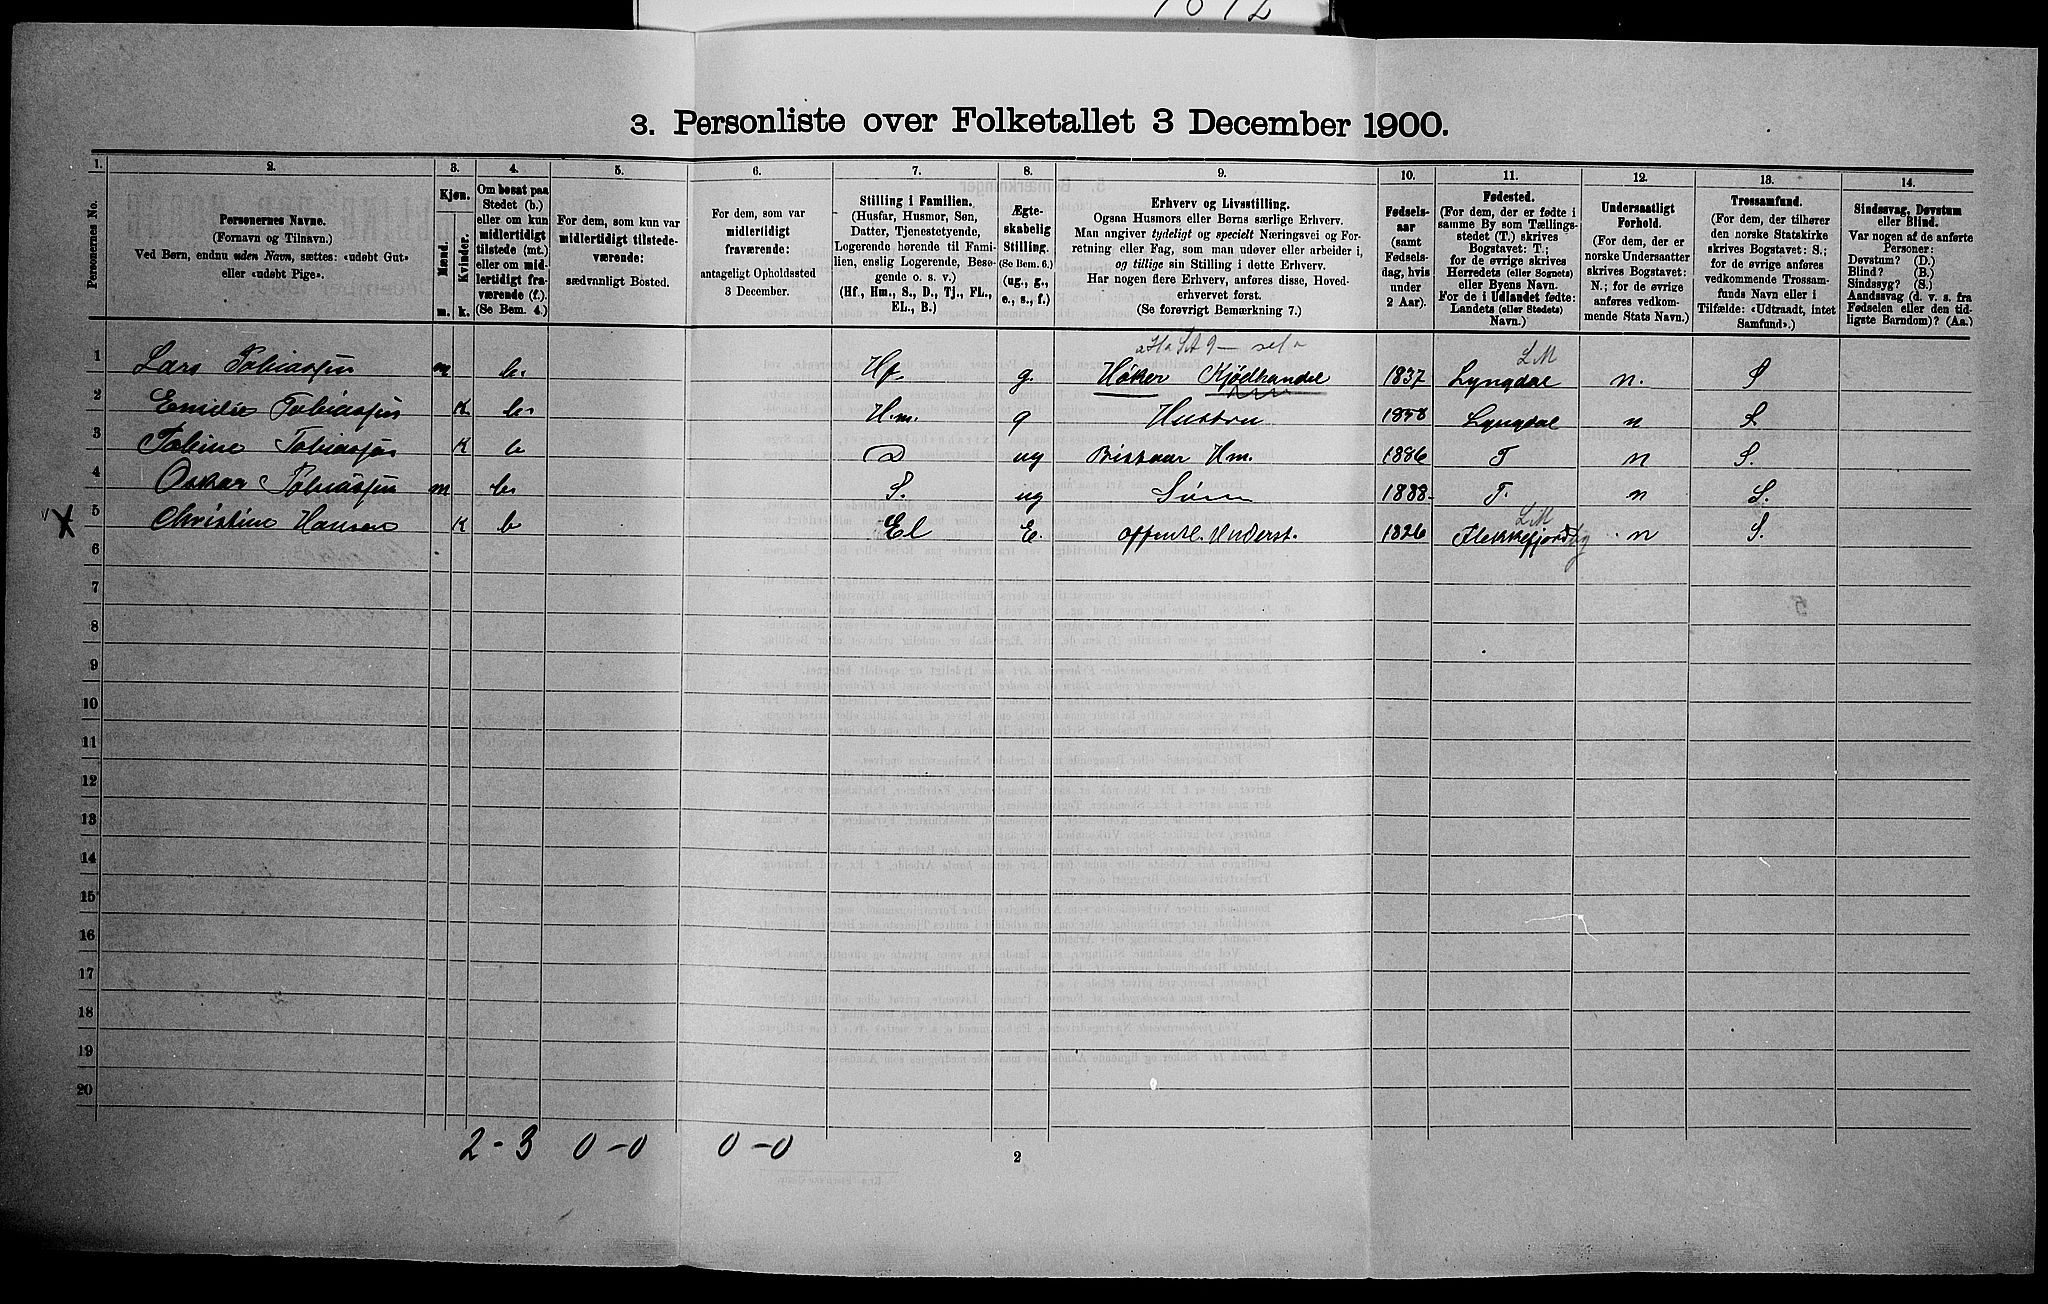 1812
3. Personliste over Folketallet 3 December 1900.
1. 2. 3. 4. 5. 6. 7. 8. 9. 10. 11. 12. 13. 14.
Personernes No.
Personernes Navne.
(Fornavn og Tilnavn.)
Ved Børn, endnu uden Navn, sættes: «udøbt Gut»
eller «udøbt Pige».
Kjøn.
Mænd.
Kvinder.
m. k.
Om bosat paa
Stedet (b.)
eller om kun
midlertidigt
tilstede (mt.)
eller om mid-
lertidigt fra-
værende (f.).
(Se Bem. 4.)
For dem, som kun var
midlertidigt tilstede-
værende:
sædvanligt Bosted.
For dem, som var
midlertidigt
fraværende:
antageligt Opholdssted
3 December.
Stilling i Familien.
(Husfar, Husmor, Søn,
Datter, Tjenestetyende,
Logerende hørende til Fami-
lien, enslig Logerende, Besø-
gende o. s. v.)
(Hf., Hm., S., D., Tj., FL.,
EL., B.)
Ægte-
skabelig
Stilling.
(Se Bem. 6.)
(ug., g.,
e., s., f.)
Erhverv og Livsstilling.
Ogsaa Husmors eller Børns særlige Erhverv.
Man angiver tydeligt og specielt Næringsvei og For-
retning eller Fag, som man udøver eller arbeider i,
og tillige sin Stilling i dette Erhverv.
Har nogen flere Erhverv, anføres disse, Hoved-
erhvervet først.
(Se forøvrigt Bemærkning 7.)
Fødsels-
aar
(samt
Fødsels-
dag, hvis
under
2 Aar).
Fødested.
(For dem, der er fødte i
samme By som Tællings-
stedet (T.) skrives
Bogstavet: T.;
for de øvrige skrives
Herredets (eller Sognets)
eller Byens Navn.
For de i Udlandet fødte:
Landets (eller Stedets)
Navn.)
Undersaatligt
Forhold.
(For dem, der er
norske Undersaatter
skrives Bogstavet:
N.; for de øvrige
anføres vedkom-
mende Stats Navn.)
Trossamfund.
(For dem, der tilhører
den norske Statskirke
skrives Bogstavet: S.;
for de øvrige anføres
vedkommende Trossam-
funds Navn eller i
Tilfælde: «Udtraadt, intet
Samfund».)
Sindssvag, Døvstum
eller Blind.
Var nogen af de anførte
Personer:
Døvstum? (D.)
Blind? (B.)
Sindssyg? (S.)
Aandssvag (d. v. s. fra
Fødselen eller den tid-
ligste Barndom)? (Aa.)
LM
1 Lars Tobiassen m b. Hf. g. Høker Kjødhandel 1837 Lyngdal n. S
2 Emilie Tobiassen K b. Hm. g Hustru 1858 Lyngdal n S
3 Tobine Tobiassen K b D ug Bistaar Hm. 1886 T n S.
4 Oskar Tobiassen m b. S. ug Søn 1888 T. n S.
LM
X 5 Christine Hansen K b El E. offentl. Underst. 1826 Flekkefjord n S.
6
7
8
9
10
11
12
13
14
15
16
17
18
19
20
2-3 0-0 0-0
2